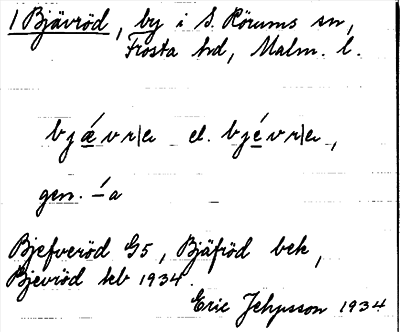 1 Bjävröd, by i S. Rörums sn,
Frosta hd, Malm. l.
bjǽvr|a el. bjévr|a,
gen. -́a
Bjefveröd G5, Bjäfröd bek,
Bjevröd teb 1934.
Eric Jehpsson 1934